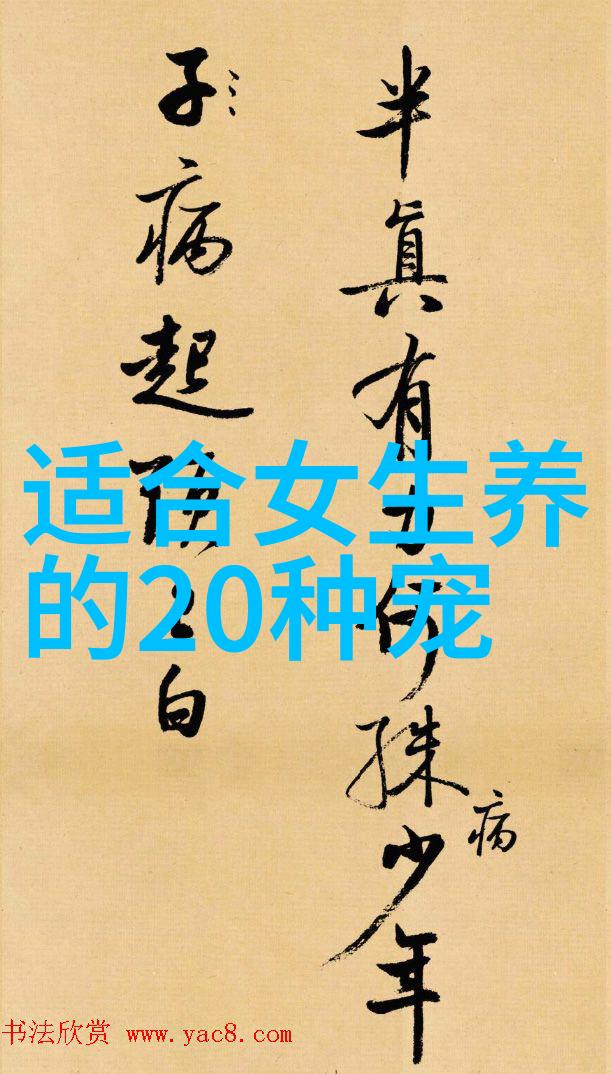 半眞有何殊少年
病
子病起白
适合女生养
的20种宠
书法欣赏 www.yac8.com